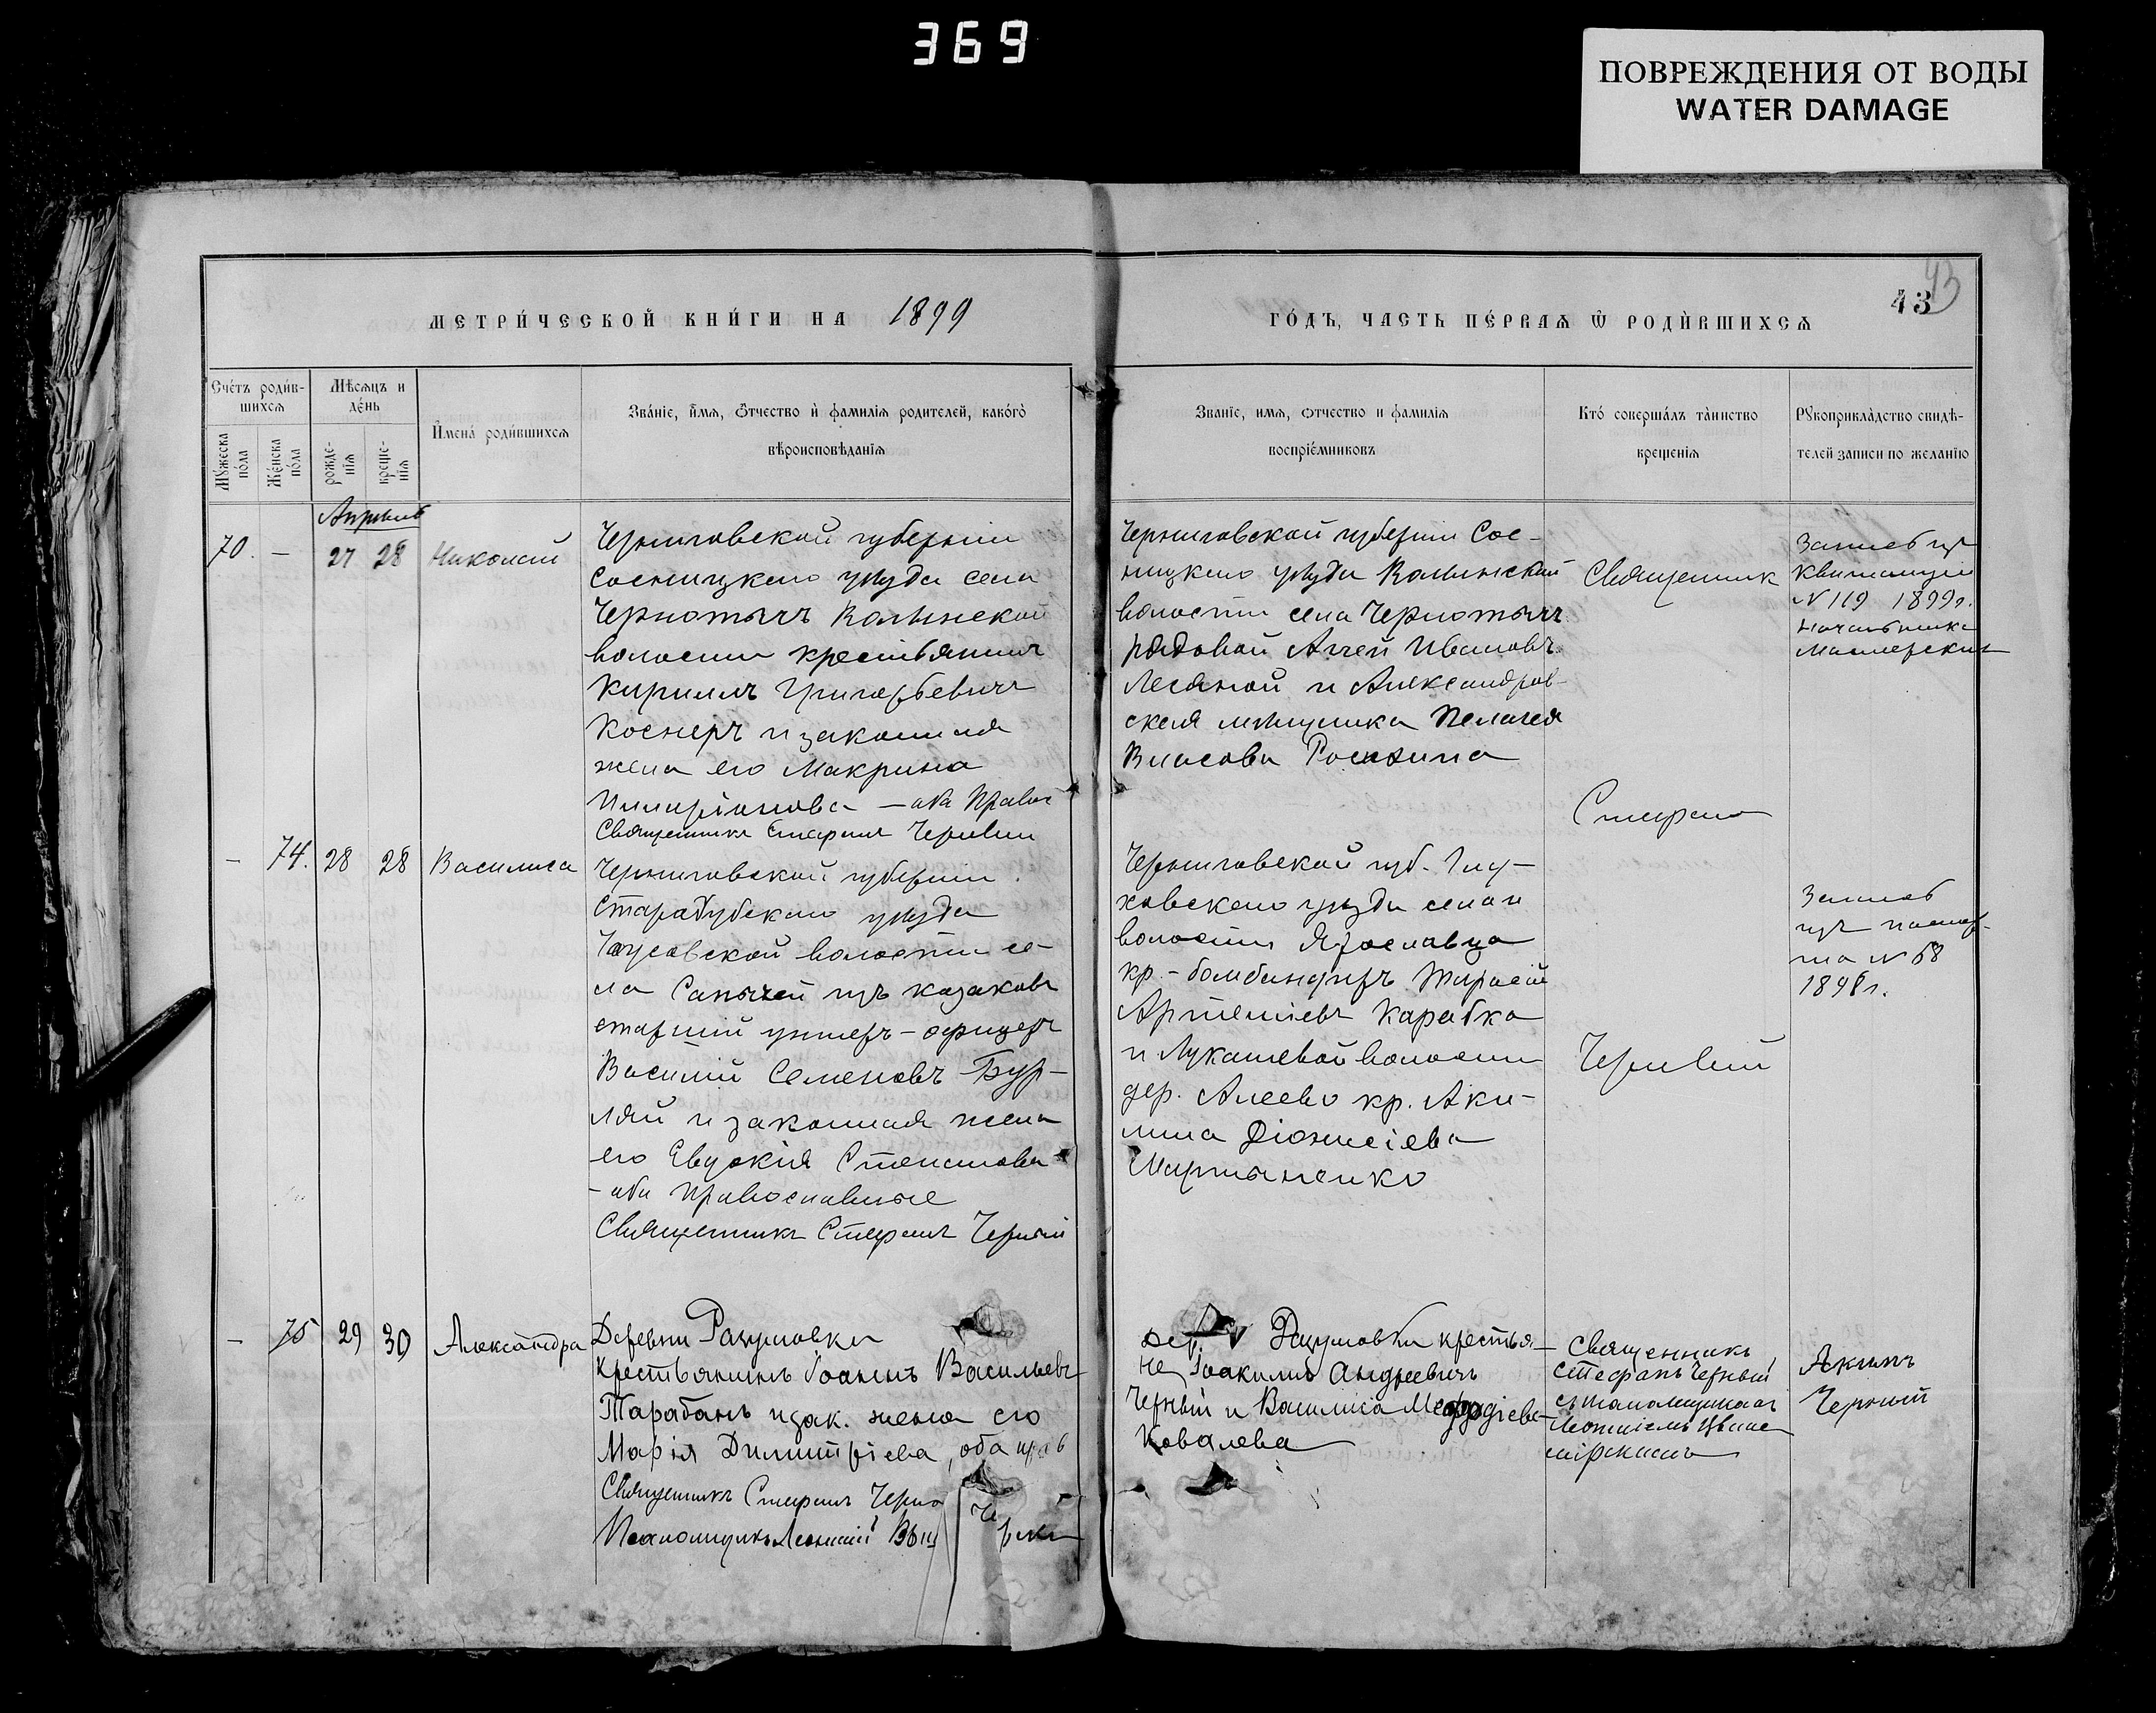 369
ПОВРЕЖДЕНИЯ ОТ ВОДЫ
WATER DAMAGE
43
43
МЕТРИ́ЧЕСКОЙ КНИ́ГИ НА 1899
ГО́ДЪ, ЧАСТЬ ПЕ́РВАѦ Ѿ РОДИ́ВШИХСѦ
Сче́тъ роди́в-
шихсѧ
Мꙋ́жеска
по́ла
Же́нска
по́ла
Мѣ́сѧцъ и
де́нь
рожде-
нїѧ
креще-
нїѧ
Имена́ роди́вшихсѧ
Зва́нїе, и́мѧ, ѻ҆́тчество и҆ фамилїѧ родителей, како́гѡ
вѣроисповѣ́данїѧ
Званїе, имѧ, ѻтчество и фамилїѧ
воспрїе́мниковъ
Кто́ соверша́лъ та́инство
креще́нїѧ
Рꙋкоприкла́дство свидѣ́-
телей записи по жела́нїю
Апрѣль
70. — 27 28 Николай
Черниговской губернiи
Сосницкаго уѣзда села
Чернотичъ Волынской
волости крестьянинъ
Кириллъ Григорьевичъ
Коснеръ и законная
жена его Макрина
Илларiонова — оба Правос
Священникъ Стефанъ Черный
Черниговской губернiи Сос-
ницкаго уѣзда Волынской
волости села Чернотичъ
рядовой Ивановъ
Лесяной и Александров-
ская мѣщанка Пелагея
Власова
Священникъ
Стефанъ
Черный
Запись из
квитанцiи
N 119 1899г.
начальника
Мастерских
— 74. 28 28 Василиса
Черниговской губернiи
Стародубскаго уѣзда
волости се-
ла Сапычей изъ казаковъ
старшiй унтеръ-офицеръ
Василiй Семеновъ Бур-
ляй и законная жена
его Евдокiя Степанова
- оба Православные
Священникъ Стефанъ Черный
Черниговской губ. Глу-
ховскаго уѣзда села и
волости Ярославца
кр. - бомбандиръ Тарасiй
Артемiевъ Карабка
и Лукашевой волости
дер. Алеево кр. Аки-
лина Дiонисiева
Мартыненко
Запись
изъ паспор-
та N 68
1898г.
— 75 29 30 Александра
Деревни Разумовки
крестьянинъ Iоаннъ Васильевъ
Тарабанъ и зак. жена его
Марiя Димитрiева, оба прав
Священникъ Стефанъ Черно
Псаломщикъ Леонтiй
дер. Разумовки крестья-
не Iоакимъ Андреевичъ
Черный и Василиса Мефодiева
Ковалева
Священникъ
Стефанъ Черный
съ псаломщикомъ
Леонтiемъ
Акимъ
Черный